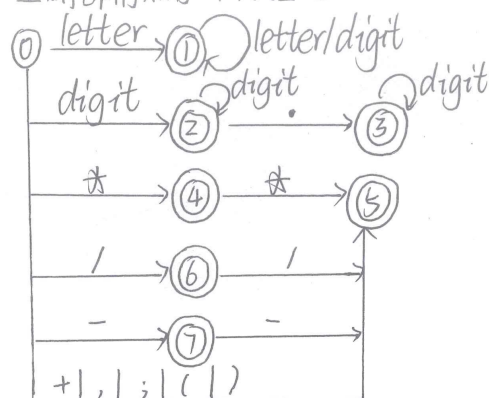 0 letter 1 letter/digit
digit 2 digit . 3 digit
* 4 * 5
/ 6 /
- 7 -
+|,|;|(|)